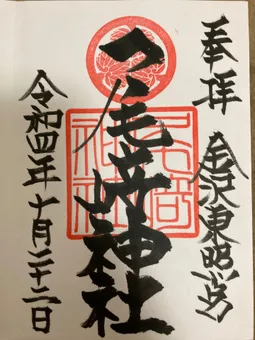 奉拝
金沢東照宮
尾﨑神社
令和四年十月二十二日